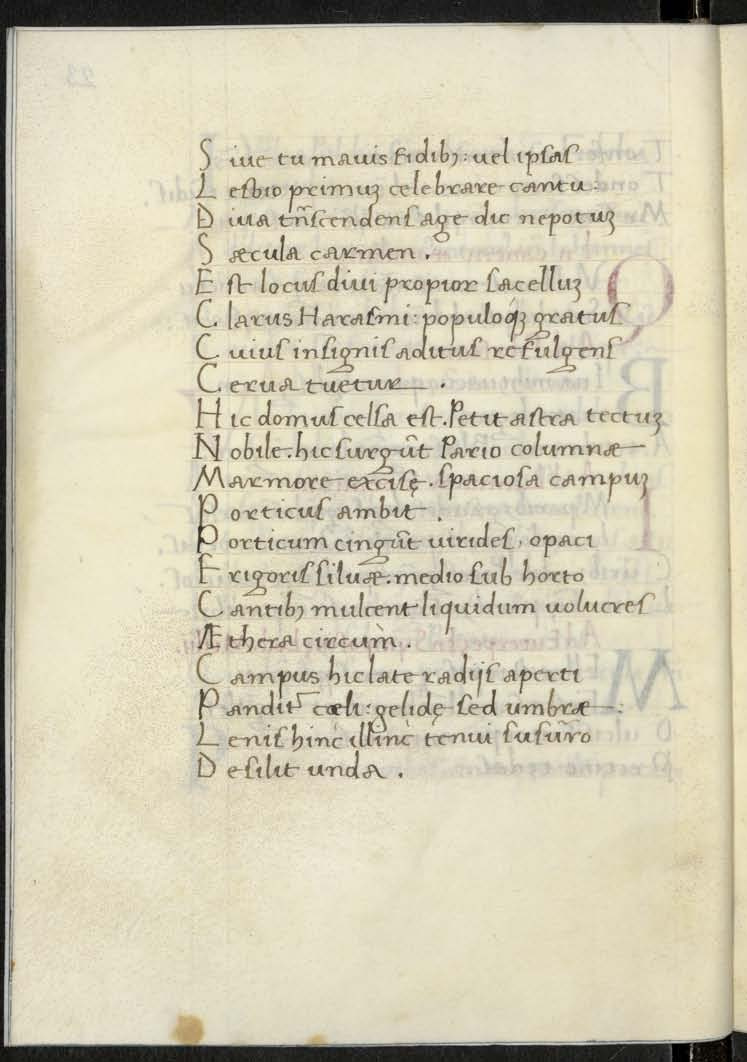 Siue tu mauis fidibꝫ: uel ipsas
Lesbio primuꝫ celebrare cantu:
Diua tñscendens age dic nepotuꝫ
Sæcula carmen.
Est locus diui propior sacelluꝫ
Clarus Harasmi: populoq́ꝫ gratus
Cuius insignis aditus refulgens
Cerua tuetur.
Hic domus celsa est. Petit astra tectuꝫ
Nobile. hic surgūt Pario columnæ
Marmore excisę. spaciosa campuꝫ
Porticus ambit.
Porticum cingūt uirides, opaci
Frigoris siluæ. medio sub horto
Cantibꝫ mulcent liquidum uolucres
Æthera circum.
Campus hic late radijs aperti
Pandit᷑ cæli: gelidę sed umbræ:
Lenis hinc illinc tenui susurro
Desilit unda.